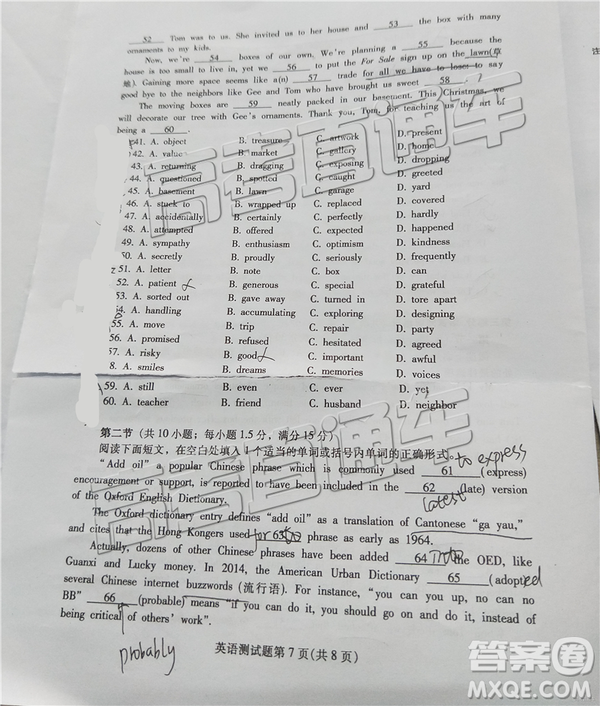 52 Tom was to us. She invited us to her house and 53 the box with many
ornaments to my kids.
Now, we're 54 boxes of our own. We're planning a 55 because the
house is too small to live in, yet we 56 to put the For Sale sign up on the lawn(草
地). Gaining more space seems like a(n) 57 trade for all we have to lose: to say
good bye to the neighbors like Gee and Tom who have brought us sweet 58 !
The moving boxes are 59 neatly packed in our basement. This Christmas, we
will decorate our tree with Gee's ornaments. Thank you, Tom, for teaching us the art of
being a 60 .
41. A. object B. treasure C. artwork D. present
42. A. value B. market C. gallery D. home
43. A. returning B. dragging C. exposing D. dropping
44. A. questioned B. spotted C. caught D. greeted
45. A. basement B. lawn C. garage D. yard
46. A. stuck to B. wrapped up C. replaced D. covered
47. A. accidentally B. certainly C. perfectly D. hardly
48. A. attempted B. offered C. expected D. happened
49. A. sympathy B. enthusiasm C. optimism D. kindness
50. A. secretly B. proudly C. seriously D. frequently
51. A. letter B. note C. box D. can
52. A. patient B. generous C. special D. grateful
53. A. sorted out B. gave away C. turned in D. tore apart
54. A. handling B. accumulating C. exploring D. designing
55. A. move B. trip C. repair D. party
56. A. promised B. refused C. hesitated D. agreed
57. A. risky B. good C. important D. awful
8. A. smiles B. dreams C. memories D. voices
59. A. still B. even C. ever D. yet
60. A. teacher B. friend C. husband D. neighbor
第二节 (共10小题;每小题1.5分,满分15分)
阅读下面短文,在空白处填入1个适当的单词或括号内单词的正确形式。
to express
"Add oil" a popular Chinese phrase which is commonly used 61 (express)
encouragement or support, is reported to have been included in the 62 (late) version
latest
of the Oxford English Dictionary.
The Oxford dictionary entry defines "add oil" as a translation of Cantonese "ga yau,"
and cites that the Hong Kongers used for 63 phrase as early as 1964.
Actually, dozens of other Chinese phrases have been added 64 into the OED, like
Guanxi and Lucky money. In 2014, the American Urban Dictionary 65 (adopted
several Chinese internet buzzwords (流行语). For instance, "you can you up, no can no
BB" 66 (probable) means "if you can do it, you should go on and do it, instead of
being critical of others' work".
probably
英语测试题第7页(共8页)
高考直通车
高考直通车
答案圈
MXQE.COM